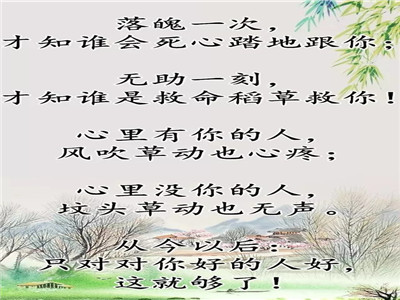 落魄一次，
才知谁会死心踏地跟你；
无助一刻，
才知谁是救命稻草救你！
心里有你的人，
风吹草动也心疼；
心里没你的人，
坟头草动也无声。
从今以后：
只对对你好的人好，
这就够了！